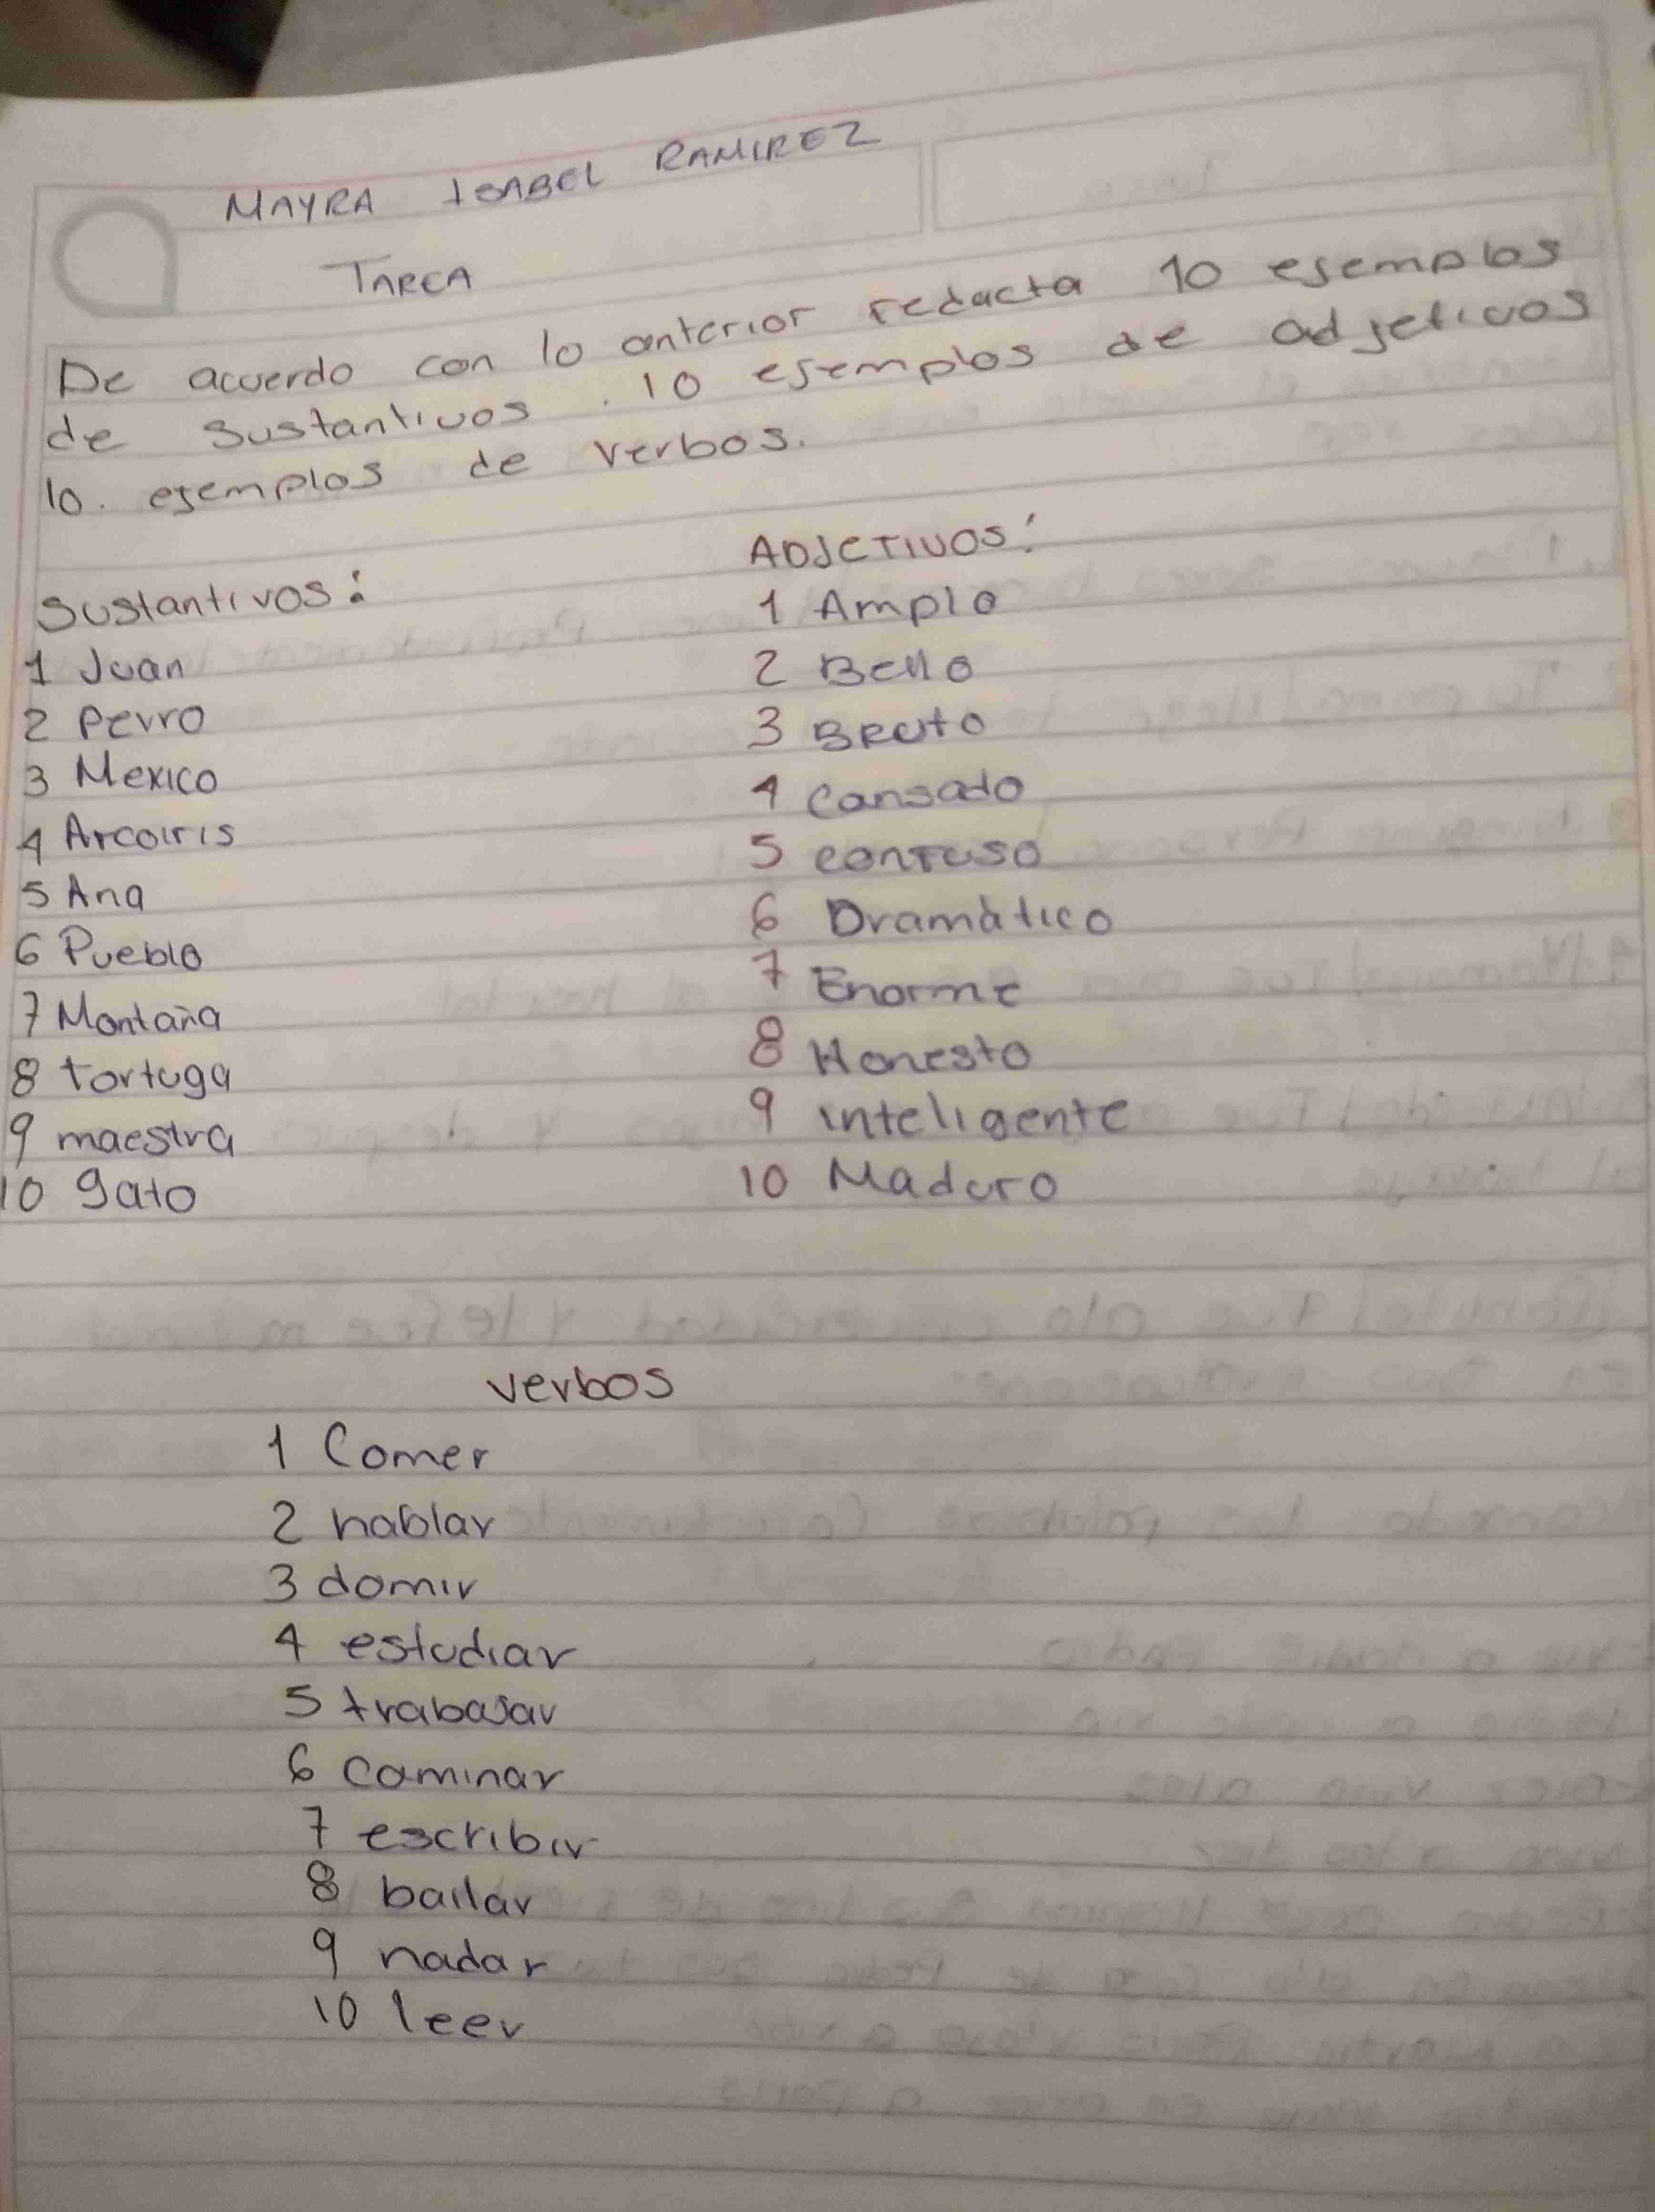 MAYRA ISABEL RAMIREZ
TAREA
De acuerdo con lo anterior redacta 10 ejemplos
de sustantivos . 10 ejemplos de adjetivos
10. ejemplos de verbos.
Sustantivos:
1 Juan
2 Perro
3 Mexico
4 Arcoiris
5 Ana
6 Pueblo
7 Montaña
8 tortuga
9 maestra
10 gato
ADJETIVOS:
1 Amplo
2 Bello
3 Bruto
4 Cansado
5 confuso
6 Dramático
7 Enorme
8 Honesto
9 inteligente
10 Maduro
verbos
1 Comer
2 hablar
3 domir
4 estudiar
5 trabajar
6 Caminar
7 escribir
8 bailar
9 nadar
10 leer